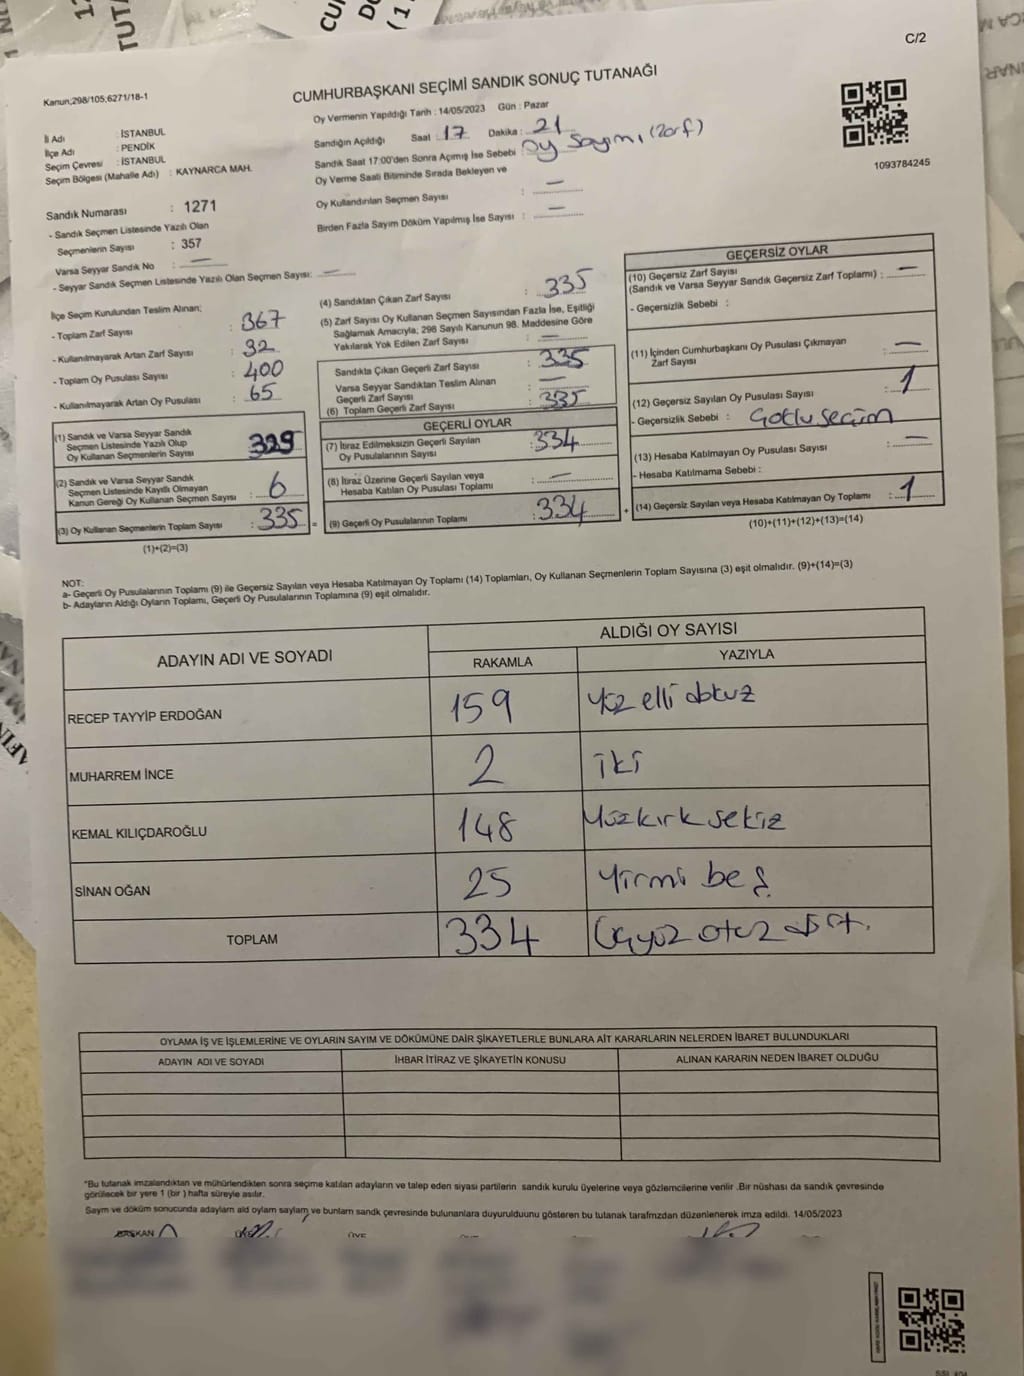 C/2
Kanun;298/105;6271/18-1
CUMHURBAŞKANI SEÇİMİ SANDIK SONUÇ TUTANAĞI
Oy Vermenin Yapıldığı Tarih : 14/05/2023 Gün : Pazar
İl Adı : İSTANBUL
İlçe Adı : PENDİK
Seçim Çevresi : İSTANBUL
Seçim Bölgesi (Mahalle Adı) : KAYNARCA MAH.
Sandığın Açıldığı Saat : 17 Dakika : 21
Sandık Saat 17:00'den Sonra Açımış İse Sebebi : Oy Sayımı (zarf)
Oy Verme Saati Bitiminde Sırada Bekleyen ve
Oy Kullandırılan Seçmen Sayısı : —
Birden Fazla Sayım Döküm Yapılmış İse Sayısı : —
1093784245
Sandık Numarası : 1271
- Sandık Seçmen Listesinde Yazılı Olan
Seçmenlerin Sayısı : 357
Varsa Seyyar Sandık No : —
- Seyyar Sandık Seçmen Listesinde Yazılı Olan Seçmen Sayısı: —
İlçe Seçim Kurulundan Teslim Alınan;
- Toplam Zarf Sayısı : 367
- Kullanılmayarak Artan Zarf Sayısı : 32
- Toplam Oy Pusulası Sayısı : 400
- Kullanılmayarak Artan Oy Pusulası : 65
(1) Sandık ve Varsa Seyyar Sandık
Seçmen Listesinde Yazılı Olup
Oy Kullanan Seçmenlerin Sayısı 329
(2) Sandık ve Varsa Seyyar Sandık
Seçmen Listesinde Kayıtlı Olmayan
Kanun Gereği Oy Kullanan Seçmen Sayısı : 6
(3) Oy Kullanan Seçmenlerin Toplam Sayısı : 335 =
(1)+(2)=(3)
(4) Sandıktan Çıkan Zarf Sayısı : 335
(5) Zarf Sayısı Oy Kullanan Seçmen Sayısından Fazla İse, Eşitliği
Sağlamak Amacıyla; 298 Sayılı Kanunun 98. Maddesine Göre
Yakılarak Yok Edilen Zarf Sayısı : —
Sandıkta Çıkan Geçerli Zarf Sayısı : 335
Varsa Seyyar Sandıktan Teslim Alınan
Geçerli Zarf Sayısı : —
(6) Toplam Geçerli Zarf Sayısı : 335
GEÇERLİ OYLAR
(7) İtiraz Edilmeksizin Geçerli Sayılan
Oy Pusulalarının Sayısı : 334
(8) İtiraz Üzerine Geçerli Sayılan veya
Hesaba Katılan Oy Pusulası Toplamı : —
(9) Geçerli Oy Pusulalarının Toplamı : 334 +
GEÇERSİZ OYLAR
(10) Geçersiz Zarf Sayısı
(Sandık ve Varsa Seyyar Sandık Geçersiz Zarf Toplamı) : —
- Geçersizlik Sebebi :
(11) İçinden Cumhurbaşkanı Oy Pusulası Çıkmayan
Zarf Sayısı : —
(12) Geçersiz Sayılan Oy Pusulası Sayısı : 1
- Geçersizlik Sebebi : Çoklu seçim
(13) Hesaba Katılmayan Oy Pusulası Sayısı : —
- Hesaba Katılmama Sebebi :
(14) Geçersiz Sayılan veya Hesaba Katılmayan Oy Toplamı : 1
(10)+(11)+(12)+(13)=(14)
NOT:
a- Geçerli Oy Pusulalarının Toplamı (9) ile Geçersiz Sayılan veya Hesaba Katılmayan Oy Toplamı (14) Toplamları, Oy Kullanan Seçmenlerin Toplam Sayısına (3) eşit olmalıdır. (9)+(14)=(3)
b- Adayların Aldığı Oyların Toplamı, Geçerli Oy Pusulalarının Toplamına (9) eşit olmalıdır.
ADAYIN ADI VE SOYADI
ALDIĞI OY SAYISI
RAKAMLA YAZIYLA
RECEP TAYYİP ERDOĞAN 159 Yüz elli dokuz
MUHARREM İNCE 2 iki
KEMAL KILIÇDAROĞLU 148 Yüzkırk sekiz
SİNAN OĞAN 25 Yirmi beş
TOPLAM 334 Üçyüz otuz dört.
OYLAMA İŞ VE İŞLEMLERİNE VE OYLARIN SAYIM VE DÖKÜMÜNE DAİR ŞİKAYETLERLE BUNLARA AİT KARARLARIN NELERDEN İBARET BULUNDUKLARI
ADAYIN ADI VE SOYADI İHBAR İTİRAZ VE ŞİKAYETİN KONUSU ALINAN KARARIN NEDEN İBARET OLDUĞU
"Bu tutanak imzalandıktan ve mühürlendikten sonra seçime katılan adayların ve talep eden siyasi partilerin sandık kurulu üyelerine veya gözlemcilerine verilir .Bir nüshası da sandık çevresinde
görülecek bir yere 1 (bir ) hafta süreyle asılır.
Sayım ve döküm sonucunda adayların ald oyların sayılarn ve bunların sandk çevresinde bulunanlara duyurulduunu gösteren bu tutanak tarafmzdan düzenlenerek imza edildi. 14/05/2023
BAŞKAN
ÜYE